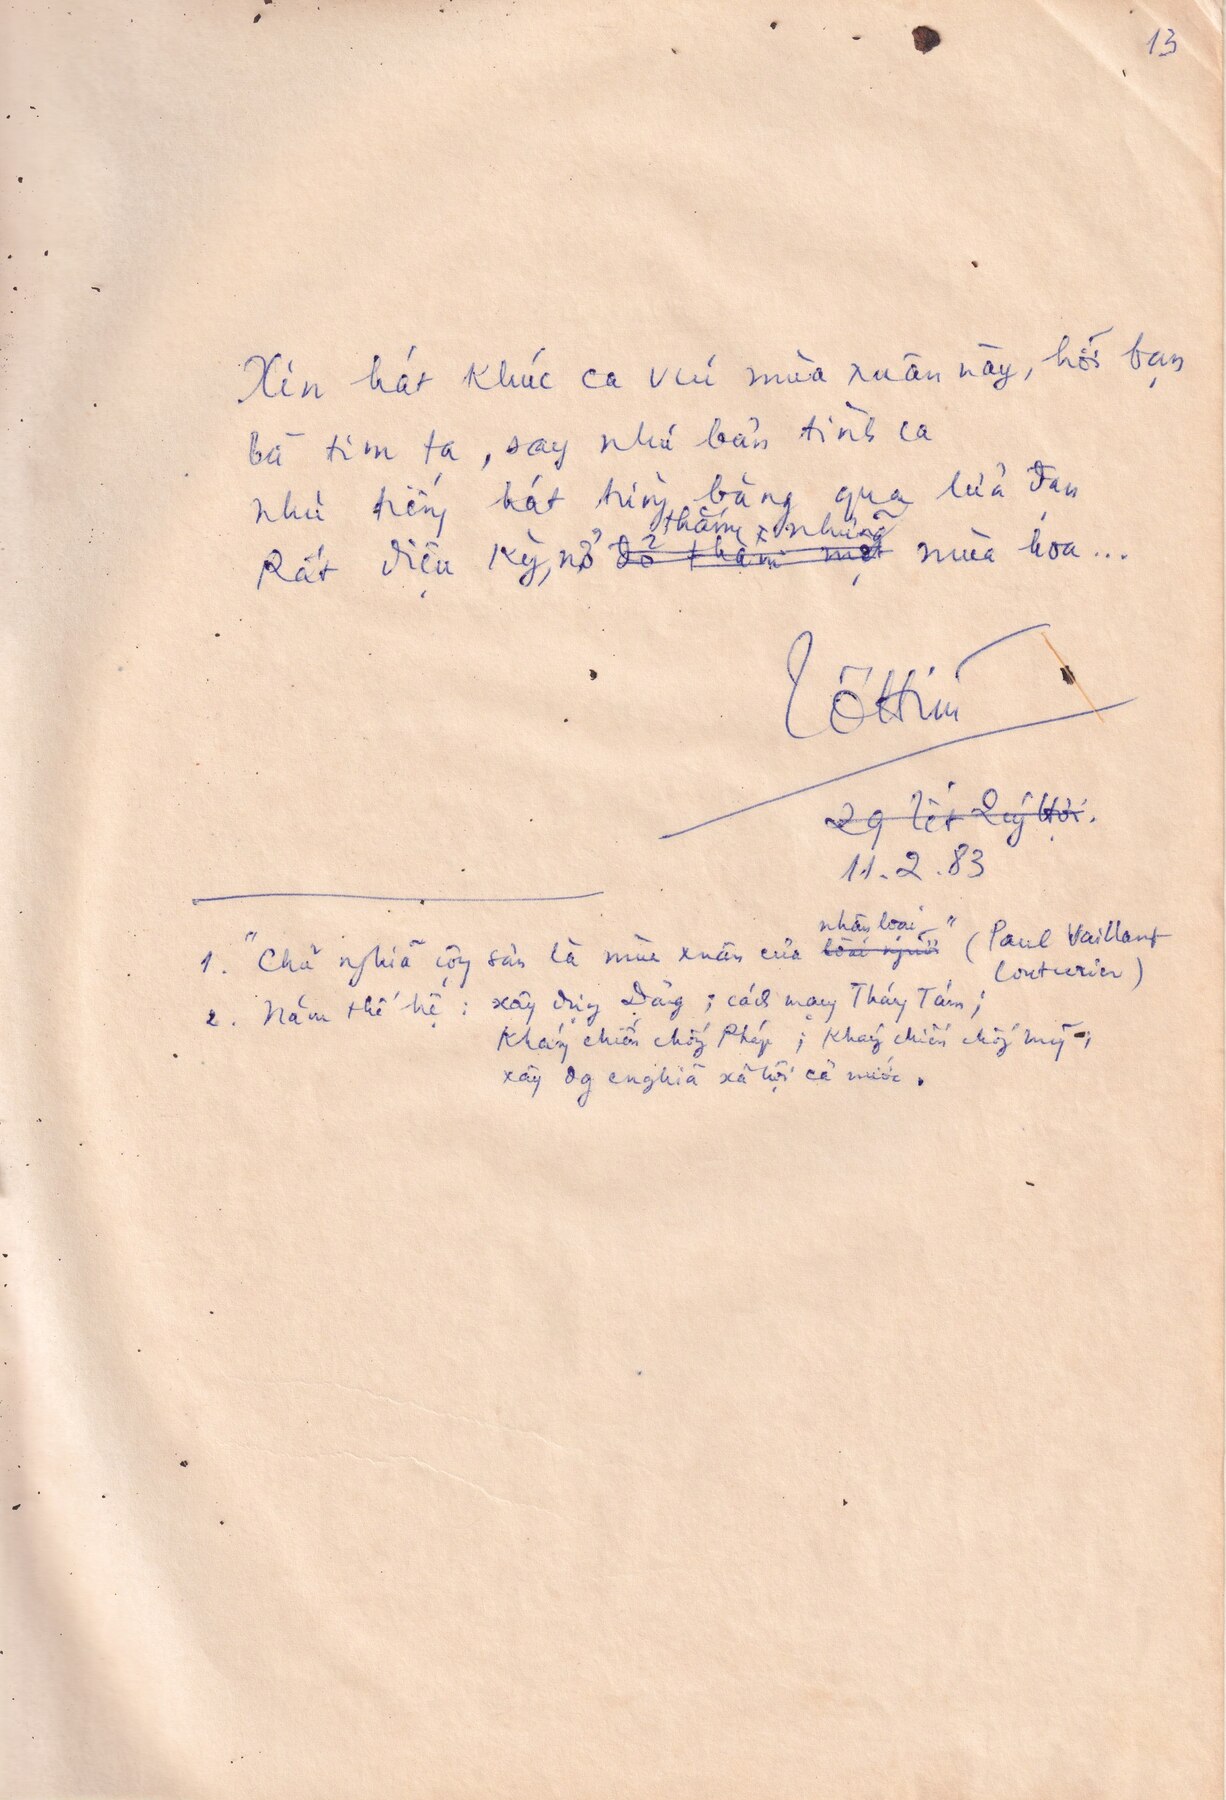 13
Xin hát khúc ca vui mùa xuân này, hỡi bạn
Cả tim ta, say như bản tình ca
như tiếng hát từng băng qua lửa đạn
thắm những
Rất diệu kỳ, nở đỏ thắm một mùa hoa...
Tố Hữu
29 Tết Quý Hợi.
11.2.83
nhân loại"
1. "Chủ nghĩa cộng sản là mùa xuân của loài người (Paul Vaillant
Couturier)
2. Năm thế hệ: xây dựng Đảng; cách mạng Tháng Tám;
Kháng chiến chống Pháp; Kháng chiến chống Mỹ;
xây dg cnghĩa xã hội cả nước.